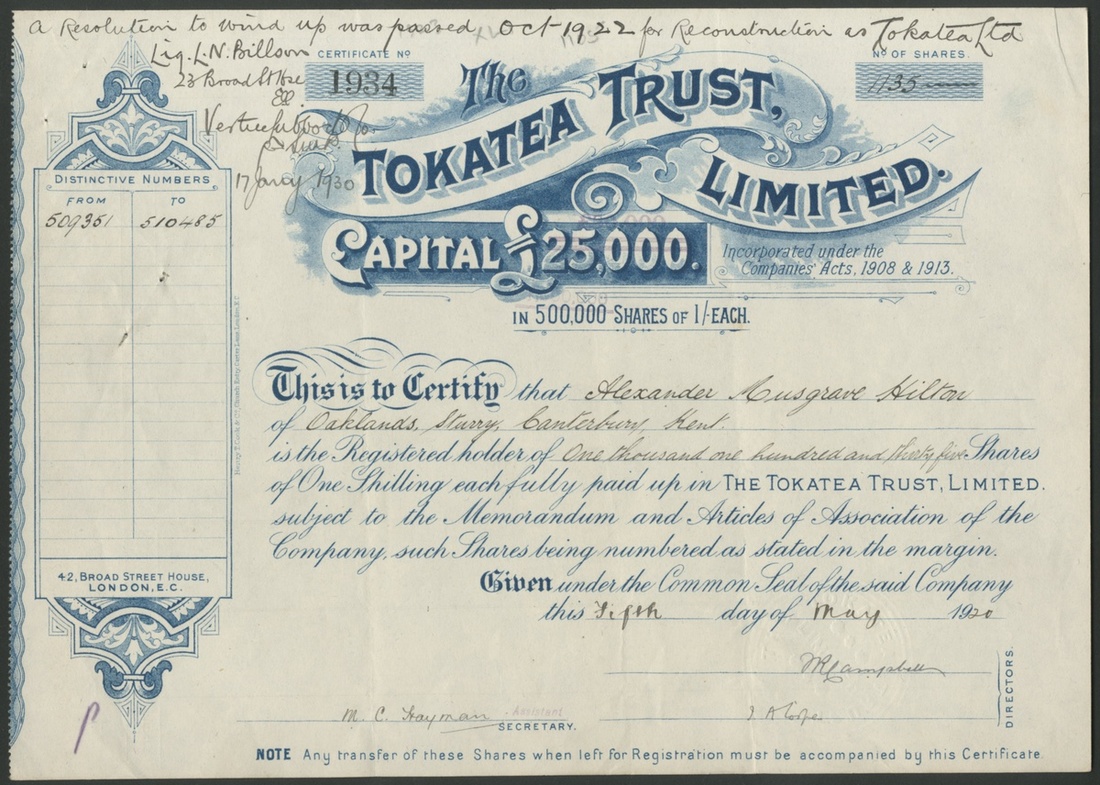 A Resolution to wind up was passed Oct 1922 for Reconstruction as Tokatea Ltd
Liq. L. N. Billson
23 Broad St Hse
17 Jany 1930
CERTIFICATE No
1934
No OF SHARES.
1135
The
TOKATEA TRUST,
LIMITED.
CAPITAL £25,000.
Incorporated under the
Companies' Acts, 1908 & 1913.
IN 500,000 SHARES OF 1/- EACH.
DISTINCTIVE NUMBERS
FROM TO
509351 510485
42, BROAD STREET HOUSE,
LONDON, E.C.
This is to Certify that Alexander Musgrave Hilton
of Oaklands, Sturry, Canterbury, Kent.
is the Registered holder of One thousand one hundred and thirty five Shares
of One Shilling each fully paid up in THE TOKATEA TRUST, LIMITED.
subject to the Memorandum and Articles of Association of the
Company, such Shares being numbered as stated in the margin.
Given under the Common Seal of the said Company
this Fifth day of May 1920
Campbell
DIRECTORS.
M. C. Hayman Assistant
SECRETARY.
NOTE Any transfer of these Shares when left for Registration must be accompanied by this Certificate.